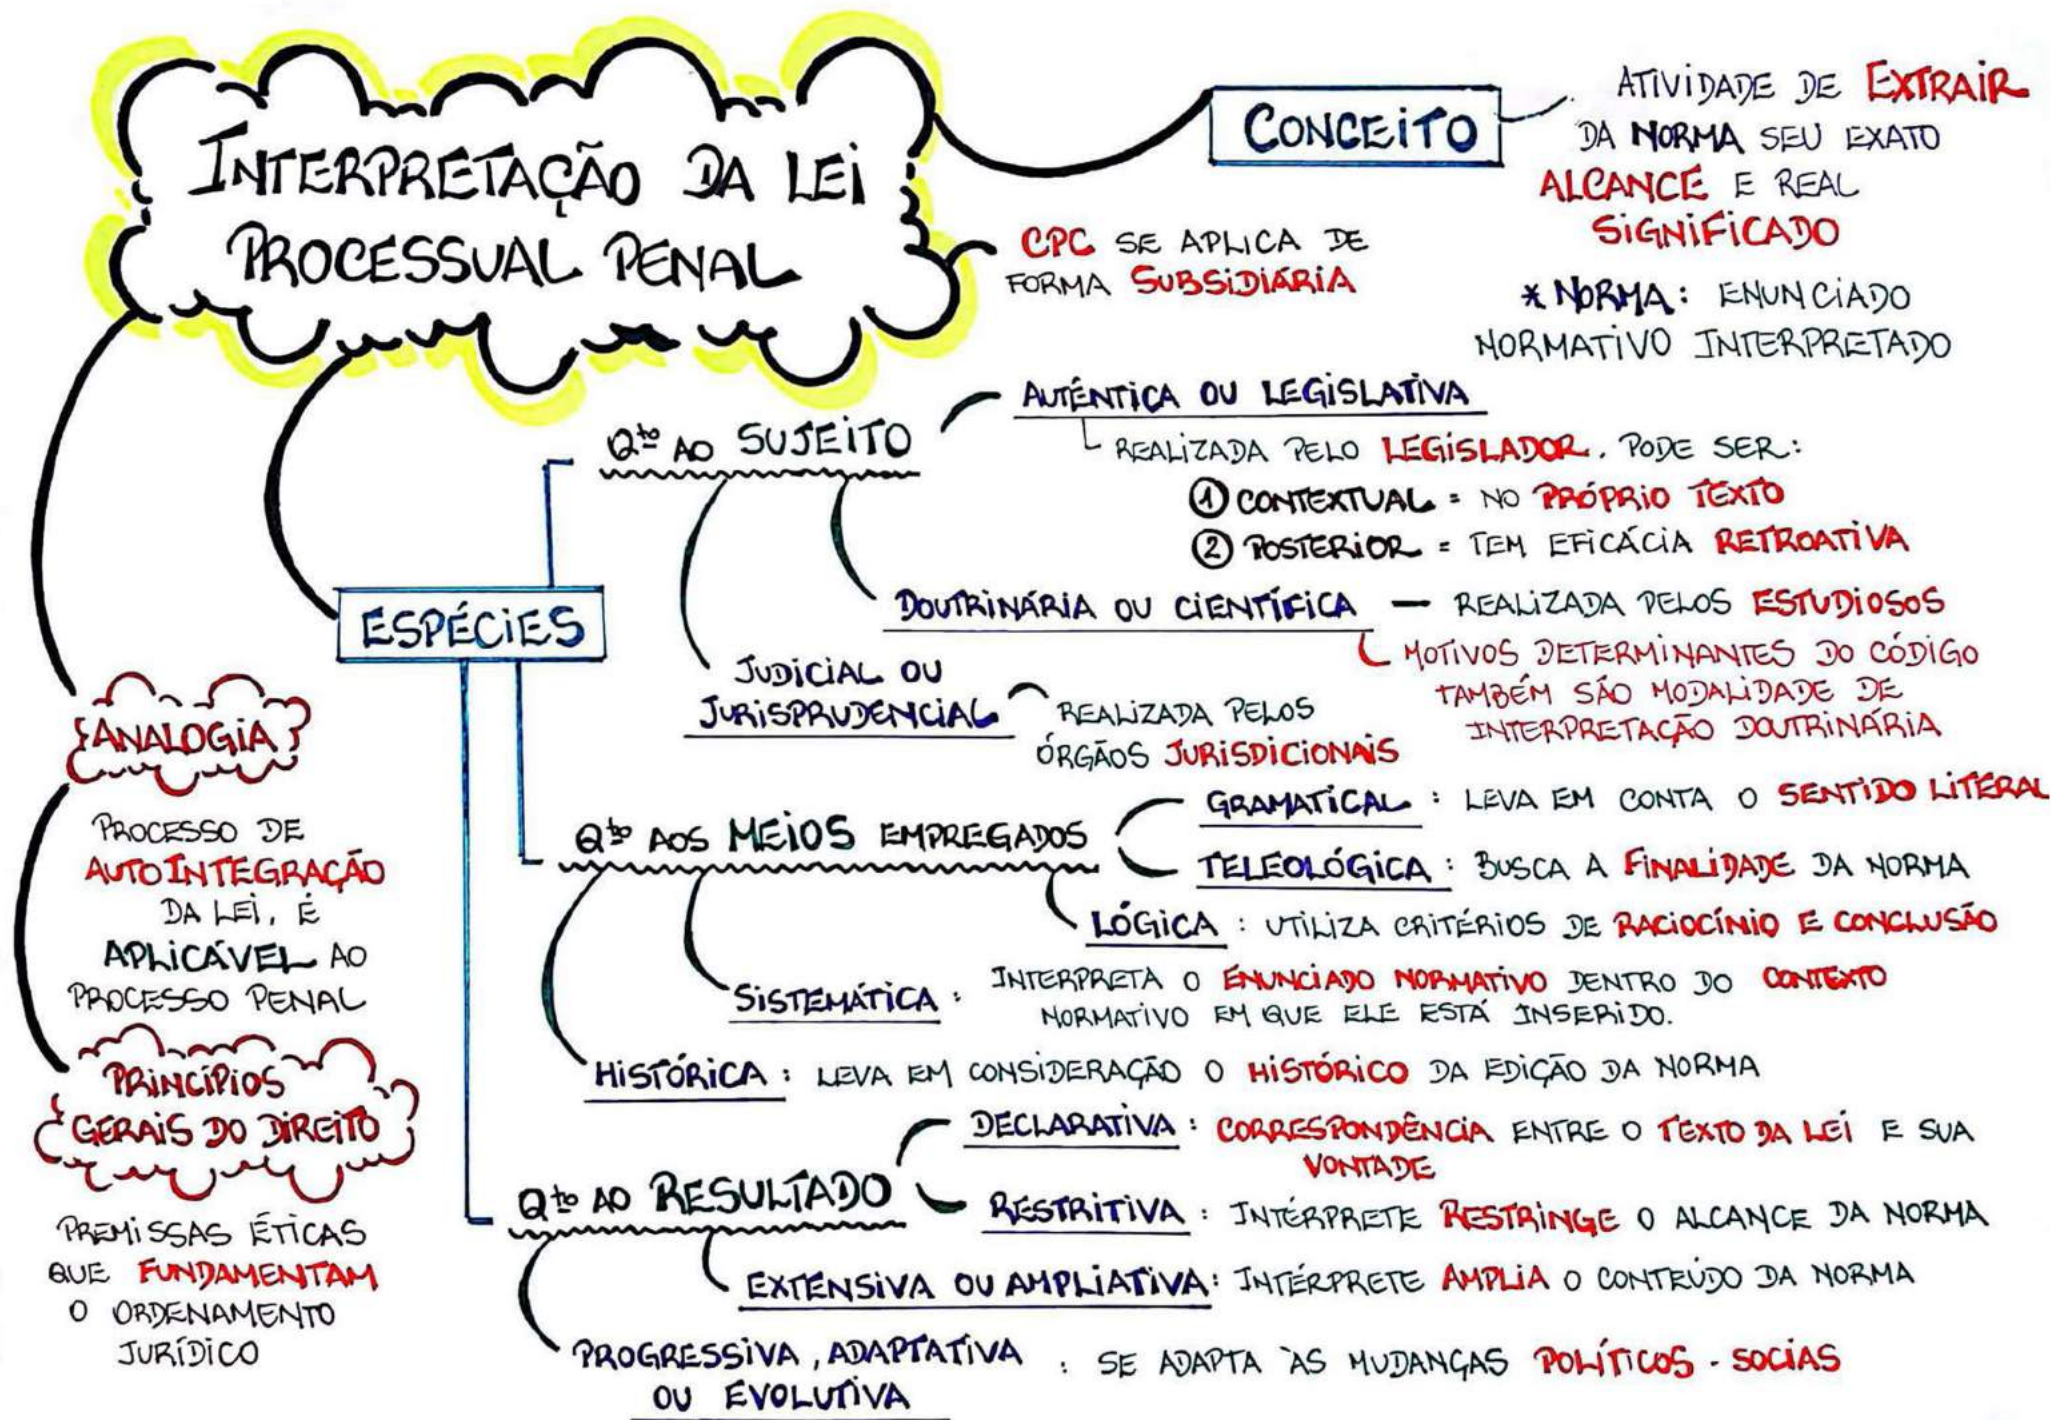 INTERPRETAÇÃO DA LEI
PROCESSUAL PENAL
CONCEITO
ATIVIDADE DE EXTRAIR
DA NORMA SEU EXATO
ALCANCE E REAL
SIGNIFICADO
* NORMA: ENUNCIADO
NORMATIVO INTERPRETADO
CPC SE APLICA DE
FORMA SUBSIDIÁRIA
ESPÉCIES
Qto AO SUJEITO
AUTÊNTICA OU LEGISLATIVA
REALIZADA PELO LEGISLADOR. PODE SER:
① CONTEXTUAL = NO PRÓPRIO TEXTO
② POSTERIOR = TEM EFICÁCIA RETROATIVA
DOUTRINÁRIA OU CIENTÍFICA — REALIZADA PELOS ESTUDIOSOS
MOTIVOS DETERMINANTES DO CÓDIGO
TAMBÉM SÃO MODALIDADE DE
INTERPRETAÇÃO DOUTRINÁRIA
JUDICIAL OU
JURISPRUDENCIAL
REALIZADA PELOS
ÓRGÃOS JURISDICIONAIS
Qto AOS MEIOS EMPREGADOS
GRAMATICAL : LEVA EM CONTA O SENTIDO LITERAL
TELEOLÓGICA : BUSCA A FINALIDADE DA NORMA
LÓGICA : UTILIZA CRITÉRIOS DE RACIOCÍNIO E CONCLUSÃO
SISTEMÁTICA : INTERPRETA O ENUNCIADO NORMATIVO DENTRO DO CONTEXTO
NORMATIVO EM QUE ELE ESTÁ INSERIDO.
HISTÓRICA : LEVA EM CONSIDERAÇÃO O HISTÓRICO DA EDIÇÃO DA NORMA
Qto AO RESULTADO
DECLARATIVA : CORRESPONDÊNCIA ENTRE O TEXTO DA LEI E SUA
VONTADE
RESTRITIVA : INTÉRPRETE RESTRINGE O ALCANCE DA NORMA
EXTENSIVA OU AMPLIATIVA : INTÉRPRETE AMPLIA O CONTEÚDO DA NORMA
PROGRESSIVA, ADAPTATIVA : SE ADAPTA ÀS MUDANÇAS POLÍTICOS - SOCIAS
OU EVOLUTIVA
ANALOGIA
PROCESSO DE
AUTOINTEGRAÇÃO
DA LEI, É
APLICÁVEL AO
PROCESSO PENAL
PRINCÍPIOS
GERAIS DO DIREITO
PREMISSAS ÉTICAS
QUE FUNDAMENTAM
O ORDENAMENTO
JURÍDICO